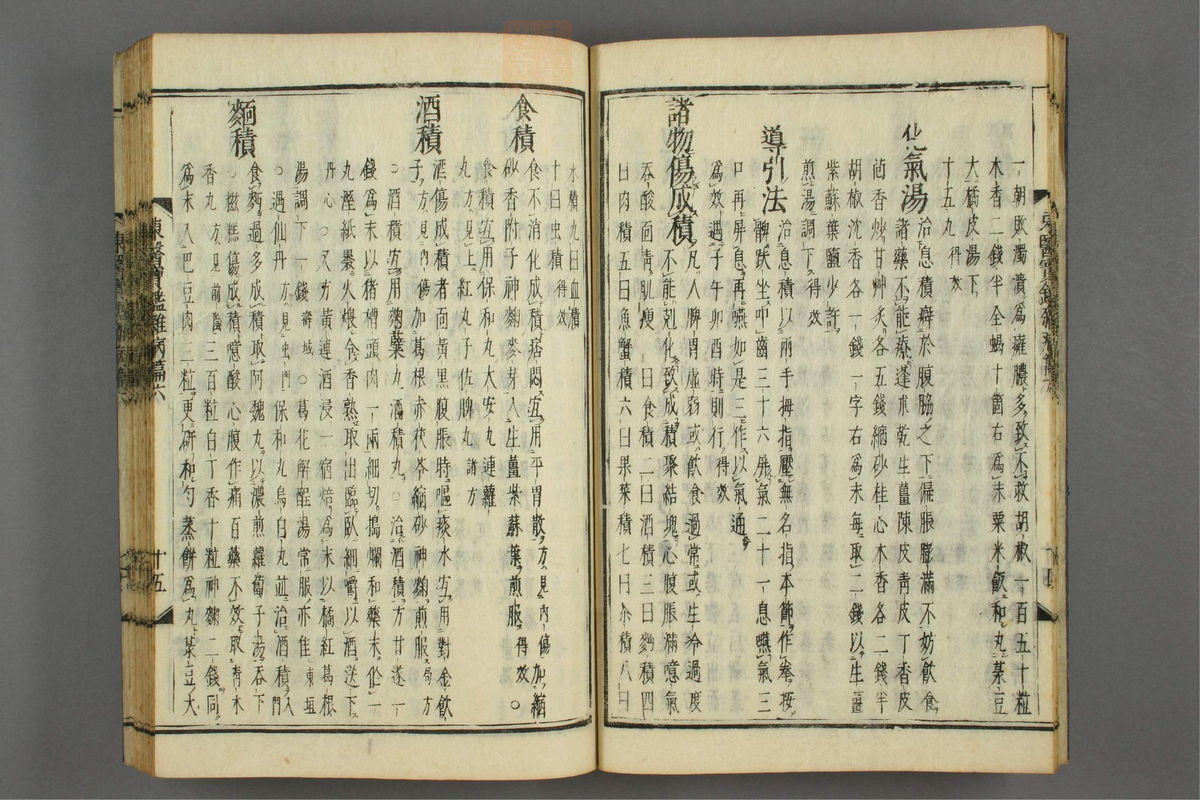 一朝敗濁潰爲癰膿多致不救胡椒一百五十粒
木香二錢半全蝎十箇右爲末粟米飯和丸菉豆
大橘皮湯下
十五丸得效
化氣湯 治息積癖於腹脇之下偏脹膨滿不妨飮食
諸藥不能療蓬朮乾生薑陳皮靑皮丁香皮
茴香炒甘艸炙各五錢縮砂桂心木香各二錢半
胡椒沈香各一錢一字右爲末每取二錢以生薑
紫蘇葉鹽少許
煎湯調下得效
導引法 治息積以兩手拇指壓無名指本節作拳按
髀趺坐叩齒三十六屛氣二十一息嚥氣三
口再屛息再嚥如是三作以氣通
爲效遇子午卯酉時則行得效
諸物傷成積 凡人脾胃虛弱或飮食過常或生冷過度
不能剋化致成積聚結塊心腹脹滿噫氣
吞酸面靑肌瘦一曰食積二曰酒積三曰麪積四
曰肉積五曰魚蟹積六曰果菜積七曰茶積八曰
水積九曰血積
十曰虫積得效
食積 食不消化成積痞悶宜用平胃散方見內傷加縮
砂香附子神麴麥芽入生薑紫蘇葉煎服得效○
食積宜用保和丸大安丸連蘿
丸方見上紅丸子佐脾丸諸方
酒積 酒傷成積者面黃黑腹脹時嘔痰水宜用對金飮
子方見內傷加葛根赤茯苓縮砂神麴煎服局方
○酒積宜用麴蘗丸酒積丸○治酒積方甘遂一
錢爲末以猪槽頭肉一兩細切搗爛和藥末作一
丸溼紙褁火煨令香熟取出臨臥細嚼以酒送下
丹心○又方黃連酒浸一宿焙爲末以橘紅葛根
湯調下一錢壽域○葛花解醒湯常服亦佳東垣
○遇仙丹方見虫門保和丸烏白丸並治酒積入門
麪積 食麪過多成積取阿魏丸以濃煎蘿蔔子湯吞下
○餈糕傷成積噫酸心腹作痛百藥不效取靑木
香丸方見前陰三百粒白丁香十粒神麴二錢同
爲末入巴豆肉三粒更研和勻蒸餠爲丸菉豆大
東醫寶鑑雜病篇六
十五